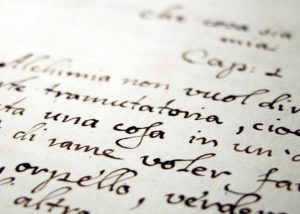 che cosa sia
mia.
Cap: 1
Alchimia non vuol dir
te tramutatoria, cioe
ta una cosa in un'
di rame voler fa
orpello, verder
altro